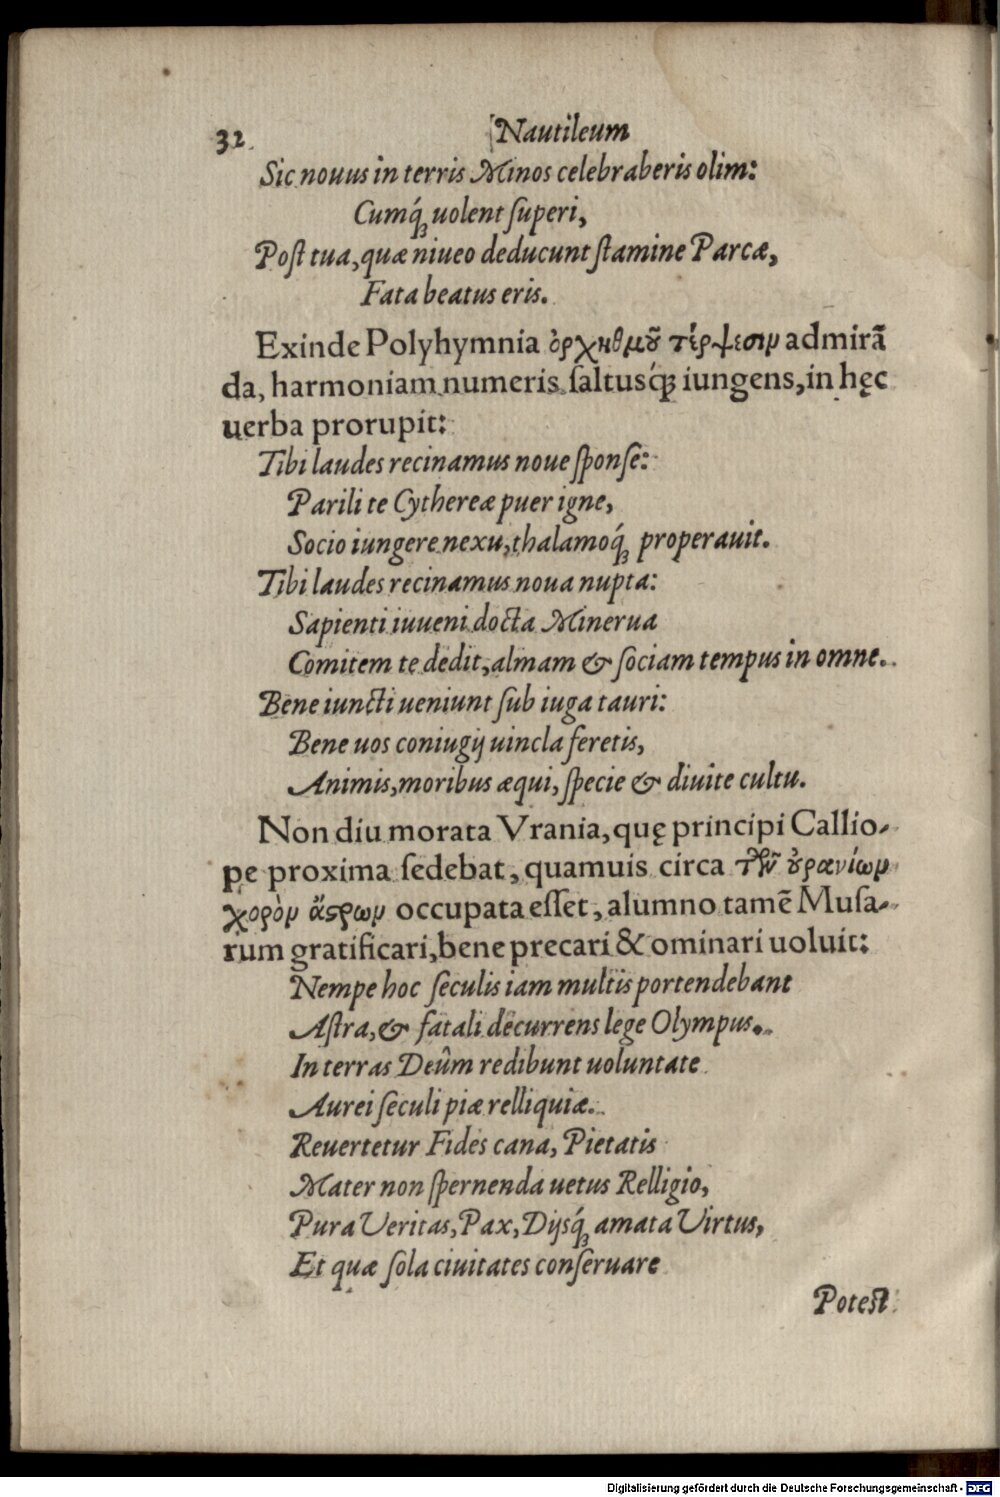 32 Nautileum
Sic nouus in terris Minos celebraberis olim:
Cumq́ꝫ uolent ſuperi,
Poſt tua, quæ niueo deducunt ſtamine Parcæ,
Fata beatus eris.
Exinde Polyhymnia ὀρχηθμοῦ τέρψεσιν admirã
da, harmoniam numeris ſaltusq́ꝫ iungens, in hęc
uerba prorupit:
Tibi laudes recinamus noue ſponſe:
Parili te Cythereæ puer igne,
Socio iungere nexu, thalamoq́ꝫ properauit.
Tibi laudes recinamus noua nupta:
Sapienti iuueni docta Minerua
Comitem te dedit, almam & ſociam tempus in omne.
Bene iuncti ueniunt ſub iuga tauri:
Bene uos coniugij uincla feretis,
Animis, moribus æqui, ſpecie & diuite cultu.
Non diu morata Vrania, quę principi Callio-
pe proxima ſedebat, quamuis circa τῶν οὐρανίων
χορὸν ἄστρων occupata eſſet, alumno tamẽ Muſa-
rum gratificari, bene precari & ominari uoluit:
Nempe hoc ſeculis iam multis portendebant
Aſtra, & fatali decurrens lege Olympus.
In terras Deûm redibunt uoluntate
Aurei ſeculi piæ relliquiæ.
Reuertetur Fides cana, Pietatis
Mater non ſpernenda uetus Relligio,
Pura Veritas, Pax, Dijsq́ꝫ amata Virtus,
Et quæ ſola ciuitates conſeruare
Poteſt
Digitalisierung gefördert durch die Deutsche Forschungsgemeinschaft - DFG